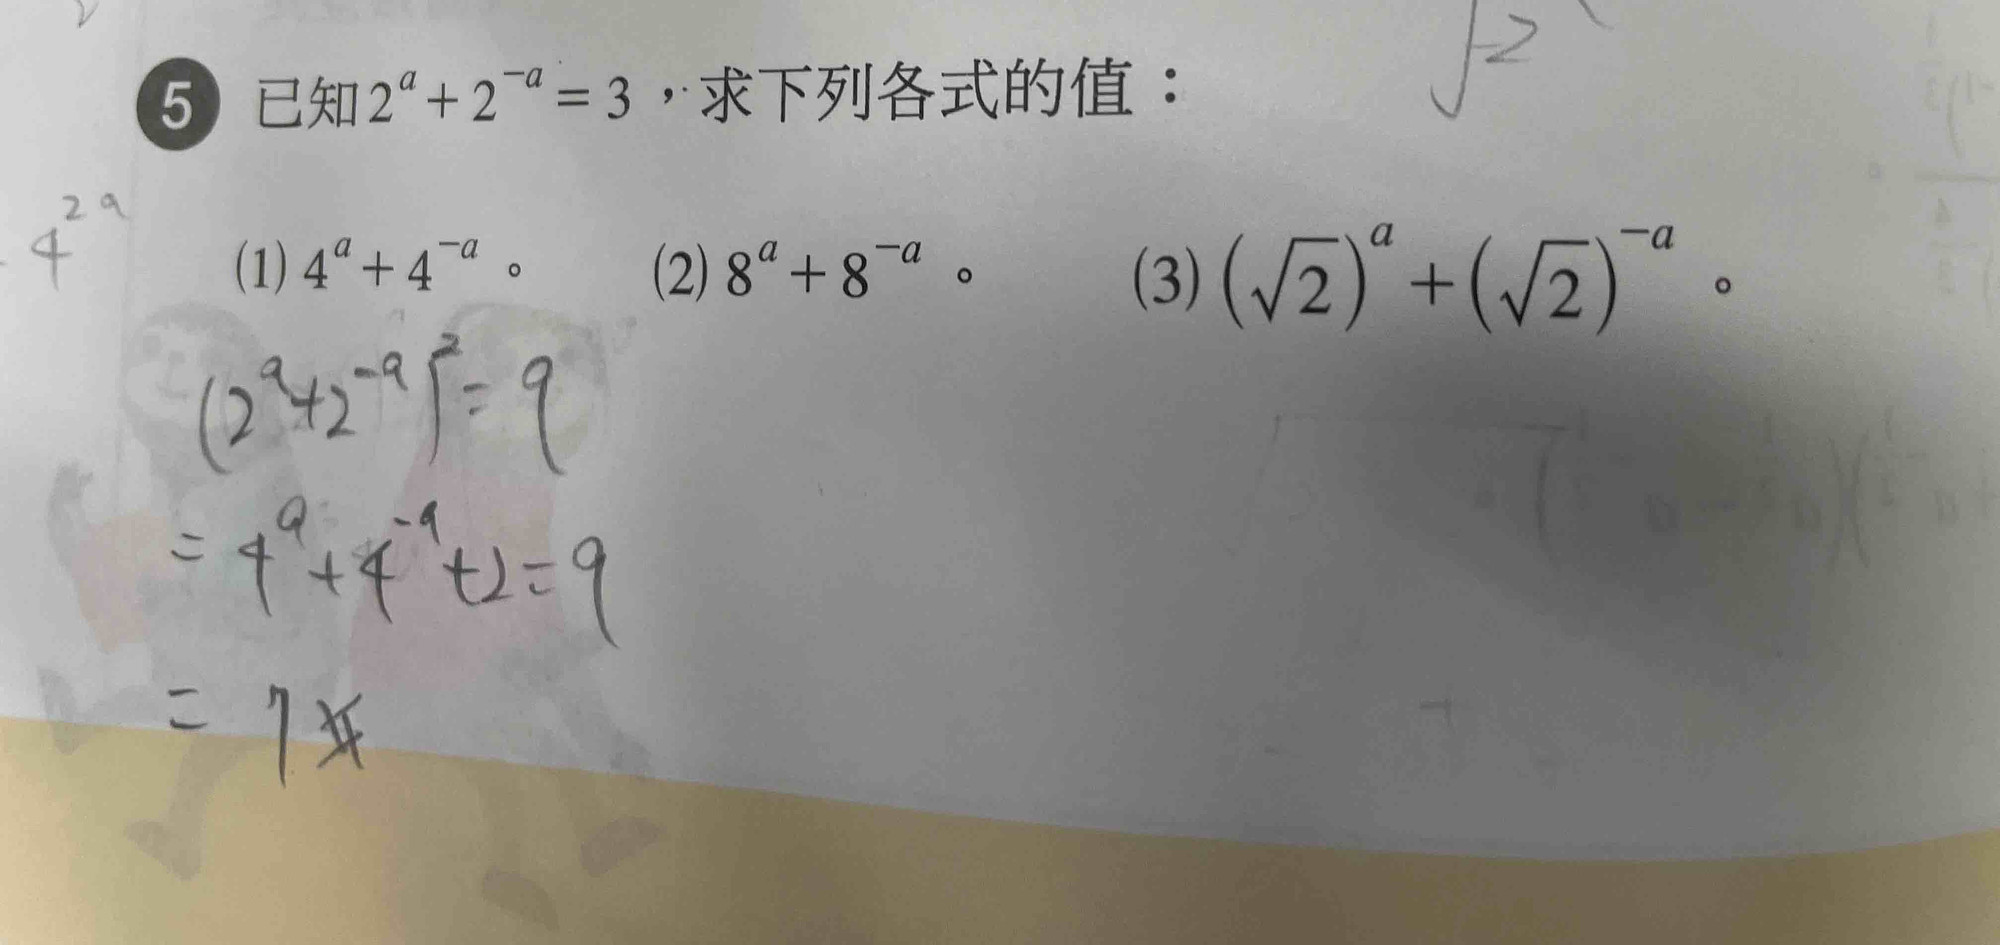 √-2
5 已知 2^a + 2^{-a} = 3，求下列各式的值：
4^{2a}
(1) 4^a + 4^{-a}。 (2) 8^a + 8^{-a}。 (3) (√2)^a + (√2)^{-a}。
(2^a+2^{-a})^2 = 9
= 4^a + 4^{-a} + 2 = 9
= 7